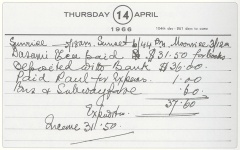 THURSDAY 14 APRIL
1966
104th day - 261 days to come
Sunrise 5/18am. Sunset 6/44 Pm. Moonrise 3/12am
Dasani Eca paid $31.50 for books
Deposited into Bank $36.00
Paid Paul for Expenses 1.00
Bus & Subwayfare .60
37.60
Expenditure
Income 311.50.